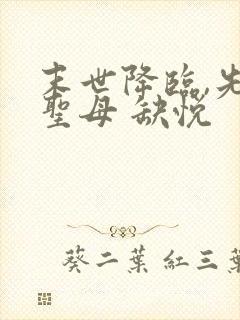 末世降臨,先
聖母 缺悅
葵二葉 紅三葉